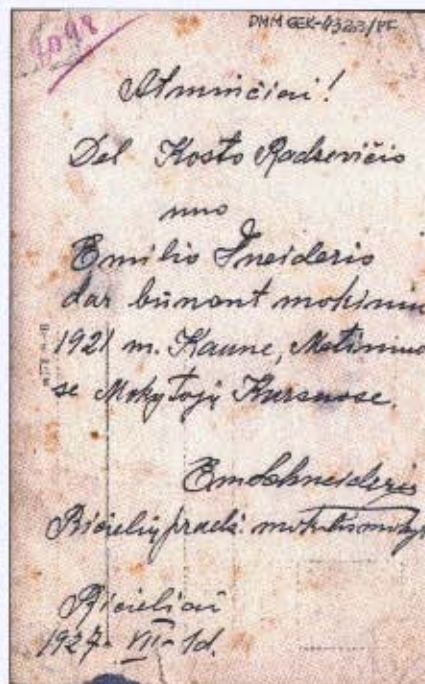 1098
DMM GEK-4323/PF
Atminčiai!
Del Kosto Radsevičio
nuo
Emilio Šneiderio
dar būnant mokiniu
1921 m. Kaune, Metiniuo
se Mokytojų Kursuose.
EmSchneideris
Ricielių pradž. mokyklos moky
Ricieliai
1927- VII- 1d.